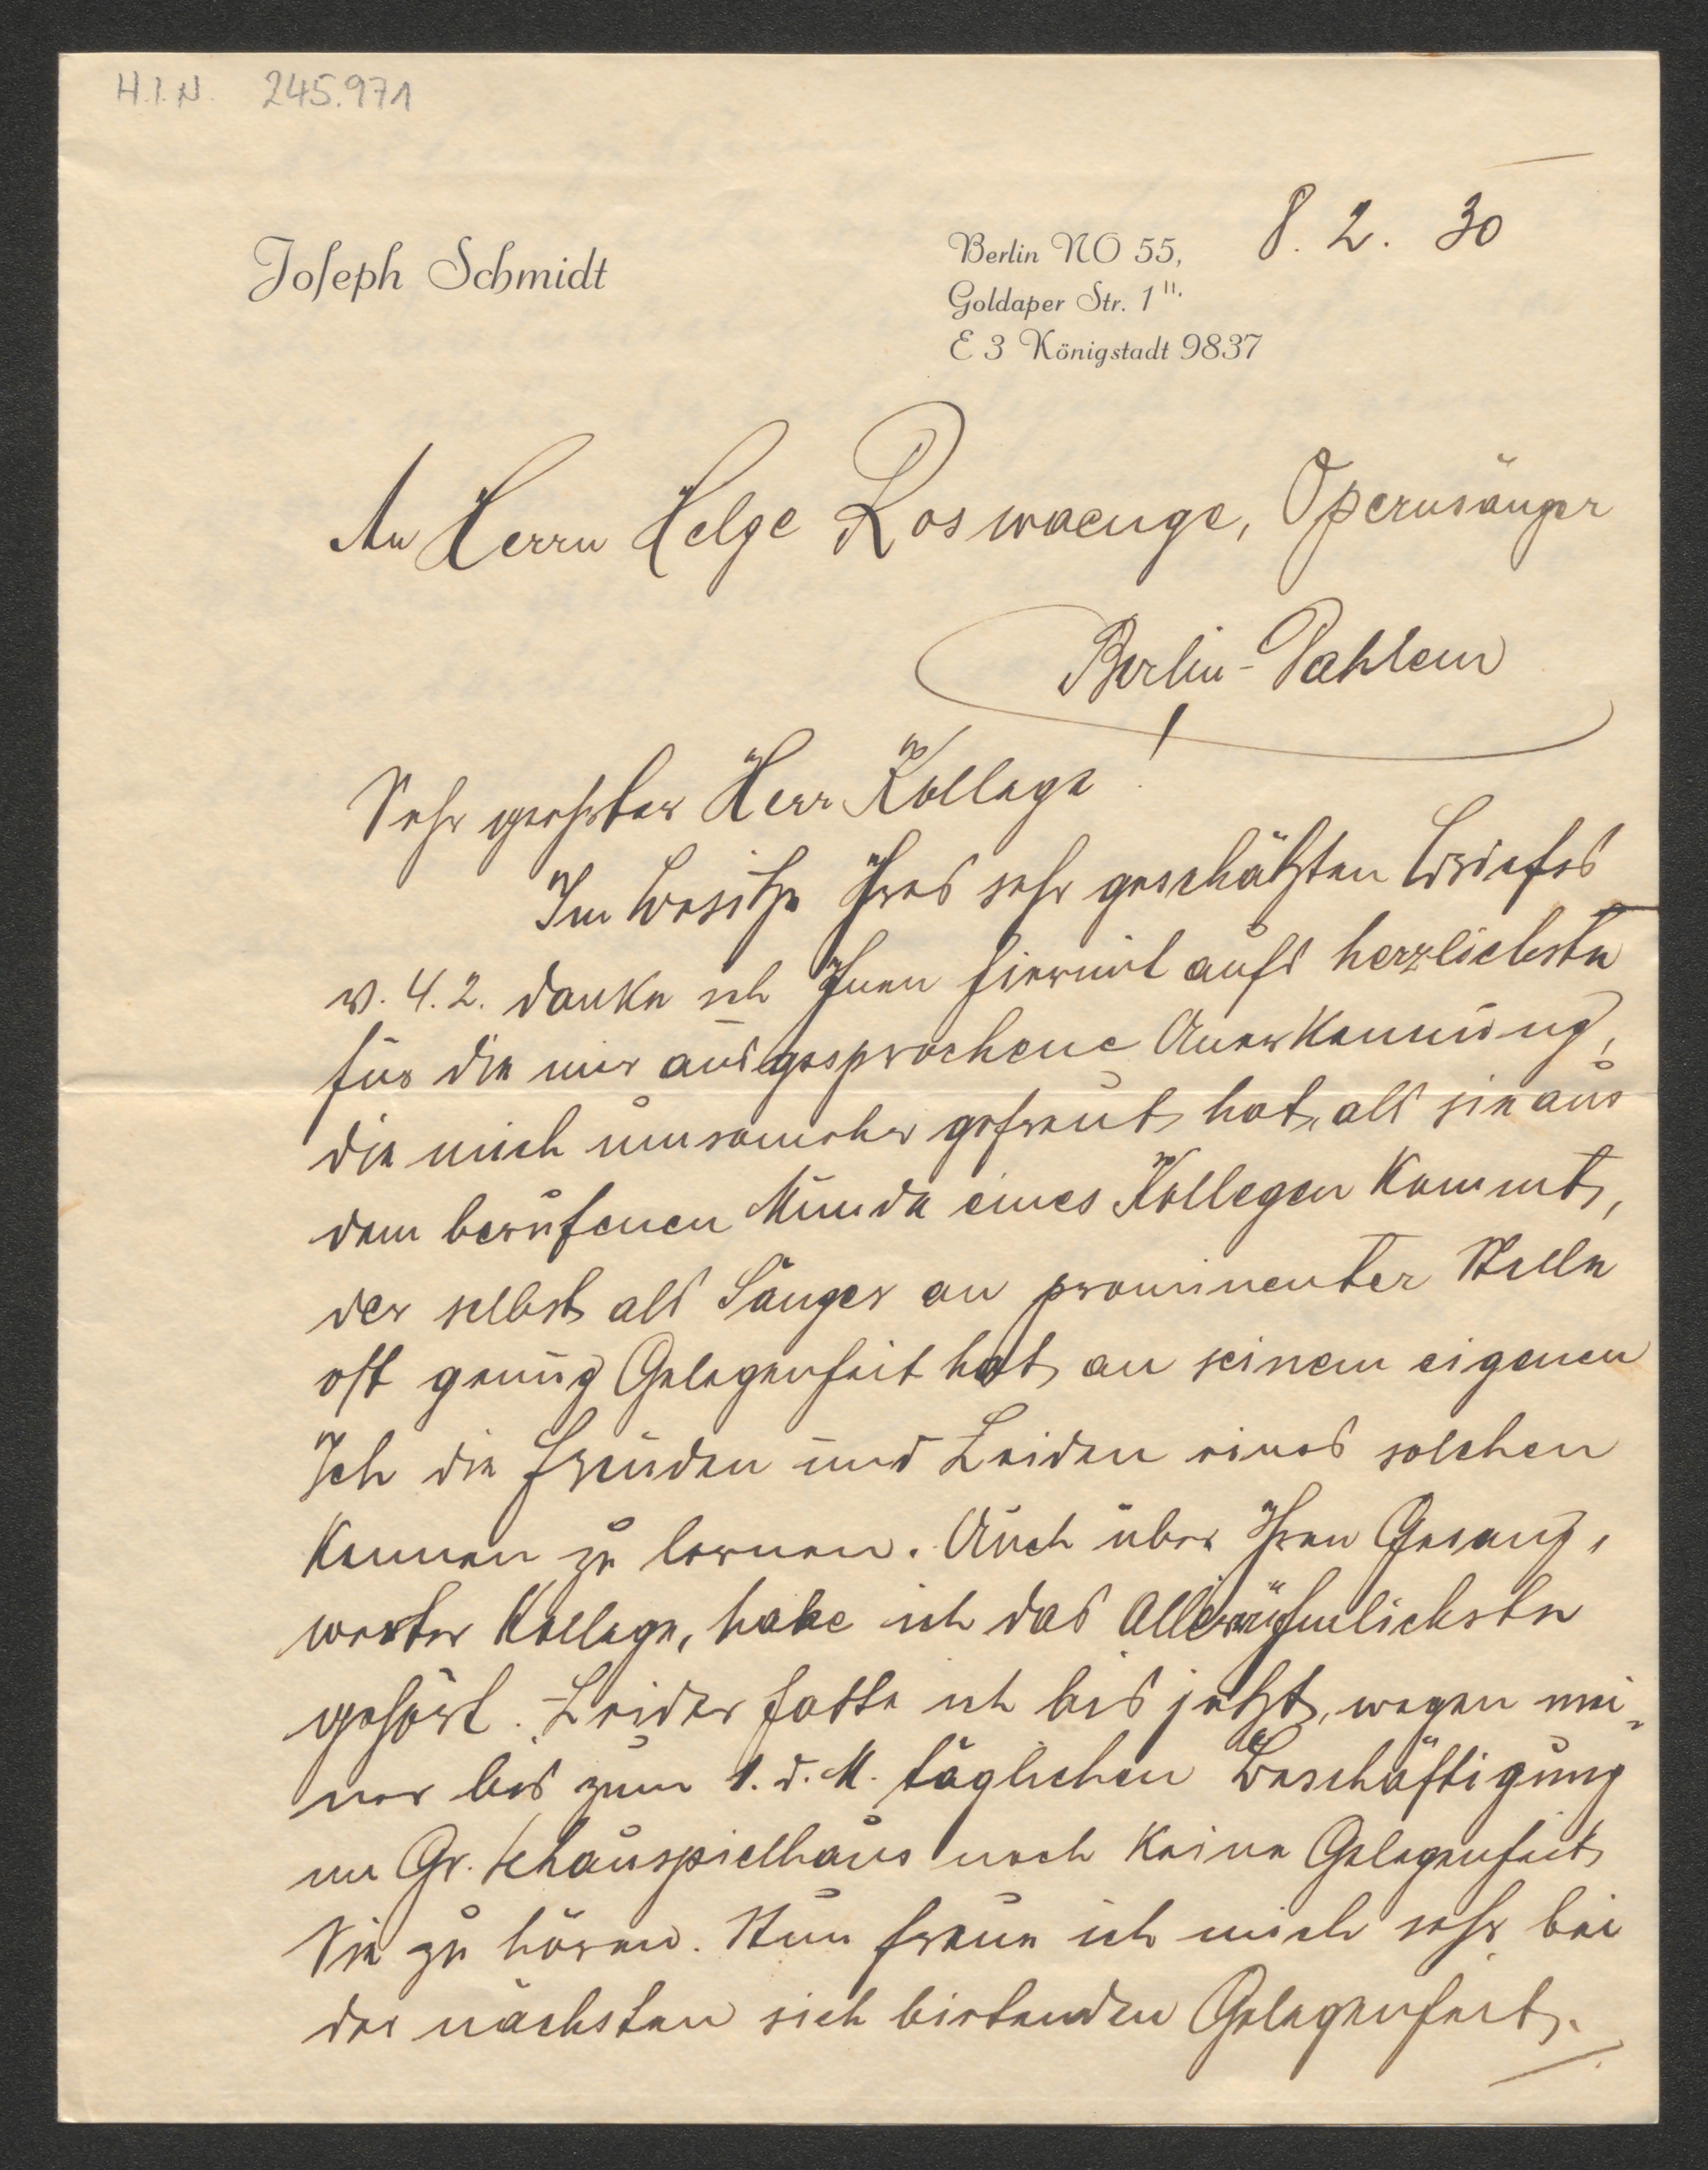 H.I.N. 245.971
Joseph Schmidt
Berlin NO 55,
8. 2. 30
Goldaper Str. 1 II.
E 3 Königstadt 9837
An Herrn Helge Roswaenge, Opernsänger
Berlin-Dahlem
Sehr geehrter Herr Kollege!
Im Besitze Ihres sehr geschätzten Briefes
v. 4. 2. danke ich Ihnen hiermit aufs herzlichste
für die mir ausgesprochene Anerkennung,
die mich umsomehr gefreut hat, als sie aus
dem berufenen Munde eines Kollegen kommt,
der selbst als Sänger an prominenter Stelle
oft genug Gelegenheit hat, an seinem eigenen
Ich die Freuden und Leiden eines solchen
kennen zu lernen. Auch über Ihren Gesang,
werter Kollege, habe ich das Allerrühmlichste
gehört. Leider hatte ich bis jetzt, wegen mei-
ner bis zum 1. d. M. täglichen Beschäftigung
im Gr. Schauspielhaus noch keine Gelegenheit
Sie zu hören. Nun freue ich mich sehr bei
der nächsten sich bietenden Gelegenheit,